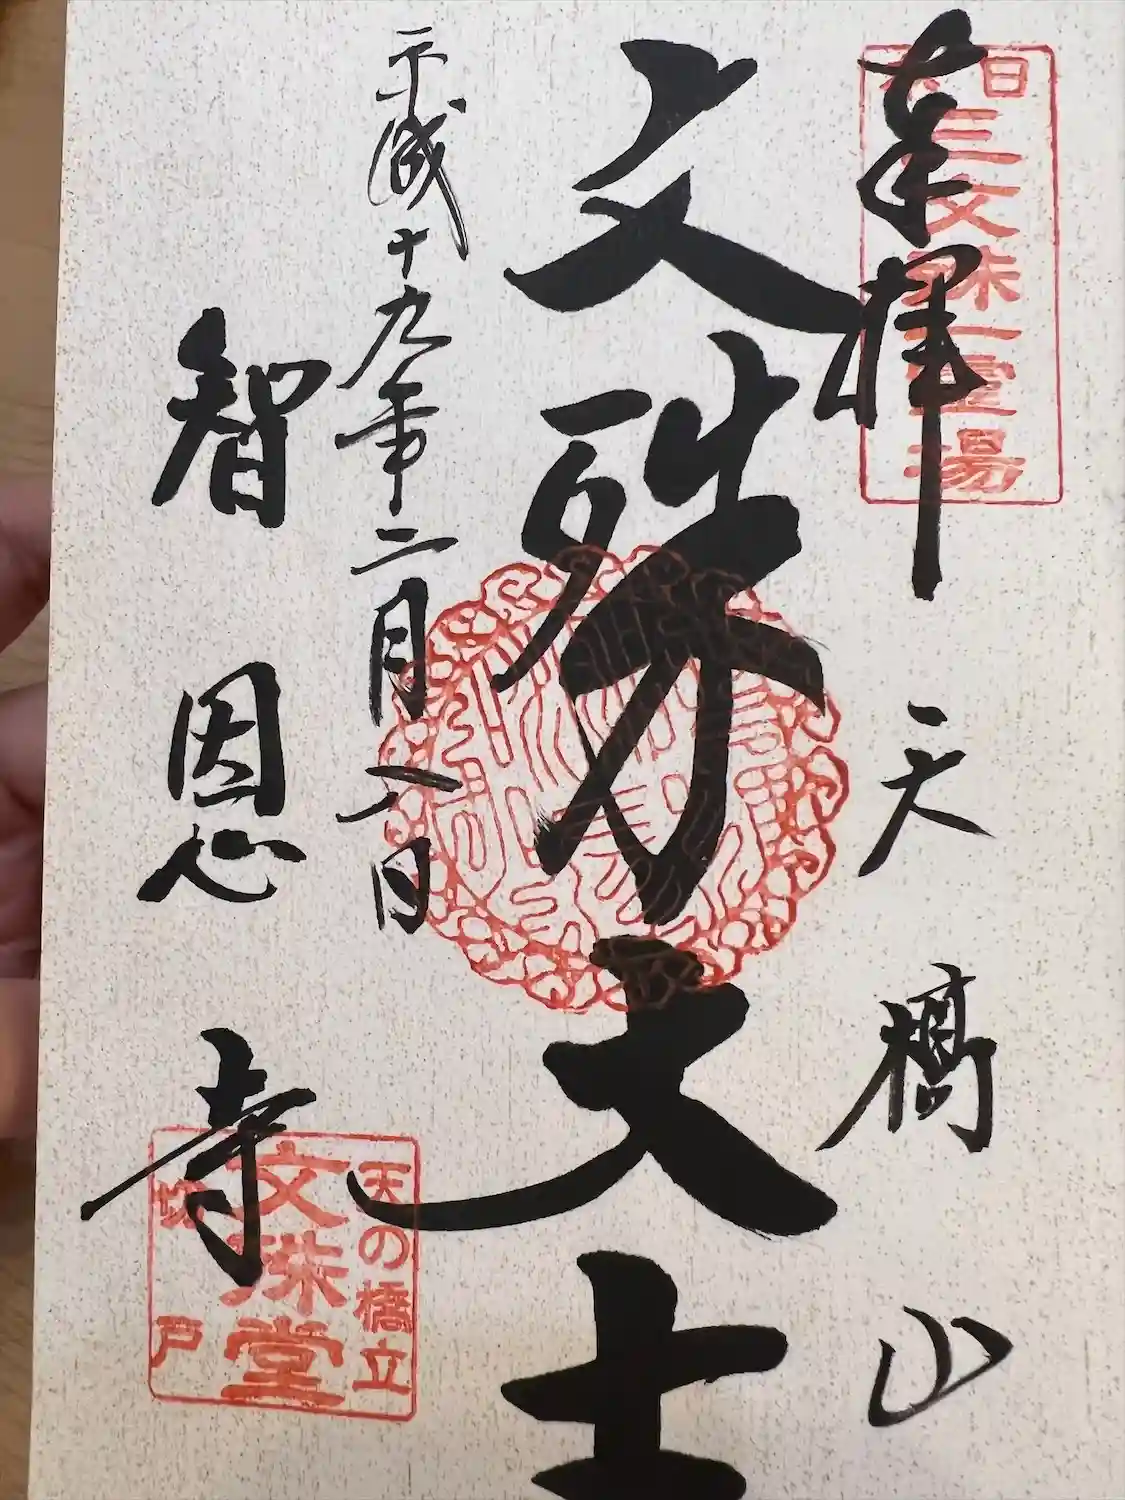 奉拝　天橋山
日本三文殊一霊場
文殊大士
平成十九年二月八日
智恩寺
天の橋立
文殊堂
切戸